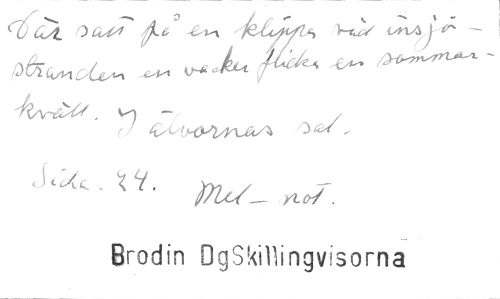 Där satt på en klippa vid insjö-
stranden en vacker flicka en sommar-
kväll. I älvornas sal.
Sida. 24. Mel- not.
Brodin DgSkillingvisorna